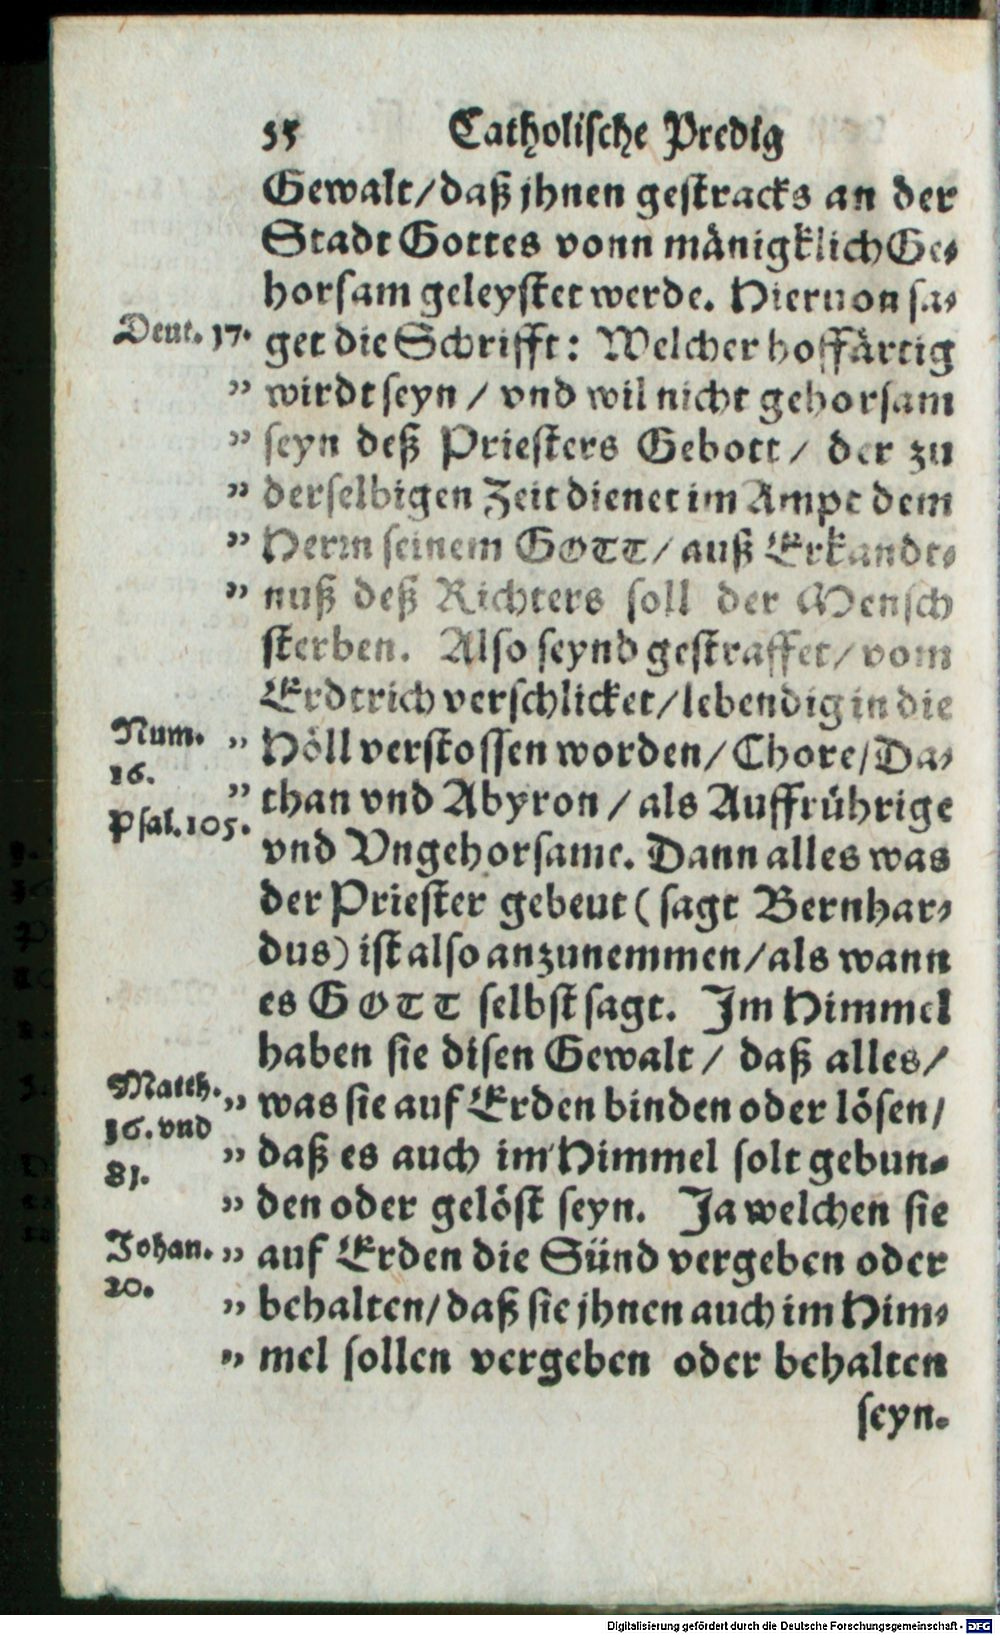 55 Catholische Predig
Gewalt/daß jhnen gestracks an der
Stadt Gottes vonn mänigklich Ge-
horsam geleystet werde. Hieruon sa-
Deut. 17. get die Schrifft: Welcher hoffärtig
" wirdt seyn / vnd wil nicht gehorsam
" seyn deß Priesters Gebott / der zu
" derselbigen Zeit dienet im Ampt dem
" Herrn seinem GOTT / auß Erkandt-
" nuß deß Richters soll der Mensch
sterben. Also seynd gestraffet / vom
Erdtrich verschlicket / lebendig in die
Num. " Höll verstossen worden / Chore / Da-
16. " than vnd Abyron / als Auffrührige
Psal. 105. vnd Vngehorsame. Dann alles was
der Priester gebeut ( sagt Bernhar-
dus) ist also anzunemmen / als wann
es GOTT selbst sagt. Im Himmel
haben sie disen Gewalt / daß alles /
Matth. " was sie auf Erden binden oder lösen /
16. vnd " daß es auch im Himmel solt gebun-
81. " den oder gelöst seyn. Ja welchen sie
Johan. " auf Erden die Sünd vergeben oder
20. " behalten / daß sie jhnen auch im Him-
" mel sollen vergeben oder behalten
seyn.
Digitalisierung gefördert durch die Deutsche Forschungsgemeinschaft - DFG